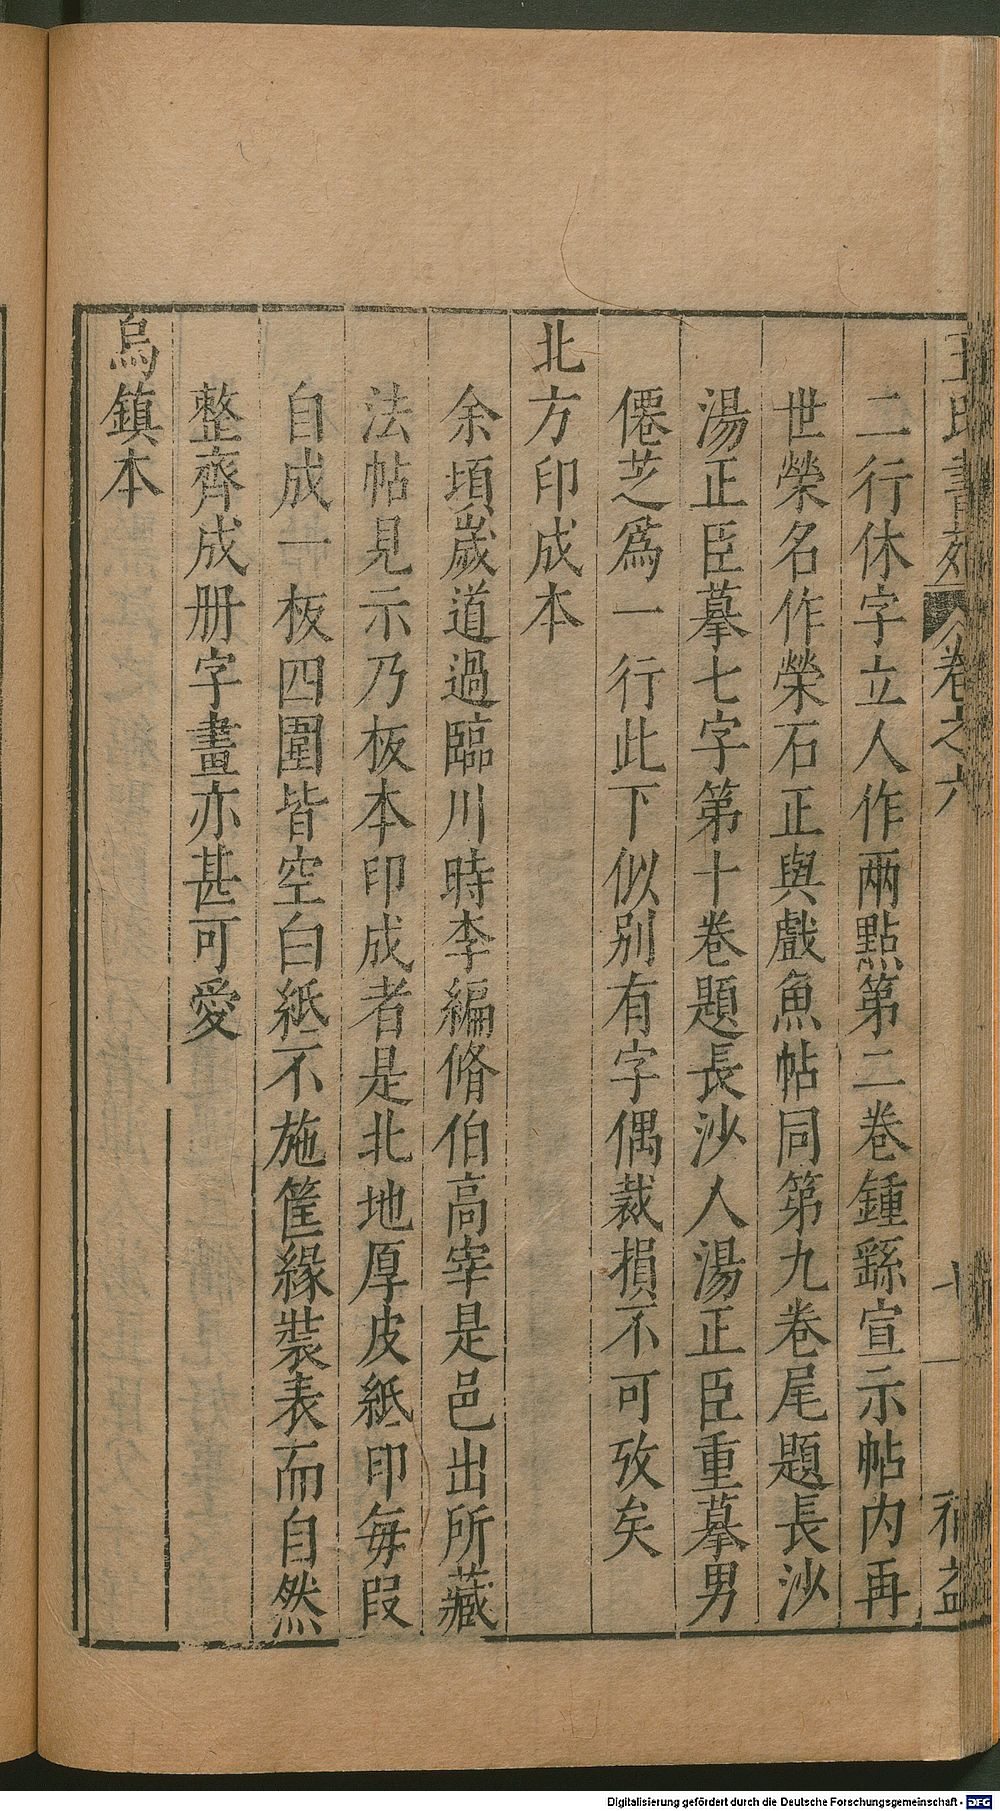 王氏書苑 卷之六 十一 補益
二行休字立人作兩點第二卷鍾繇宣示帖內再
世榮名作榮石正與戲魚帖同第九卷尾題長沙
湯正臣摹七字第十卷題長沙人湯正臣重摹男
僊芝爲一行此下似别有字偶裁損不可攷矣
北方印成本
余頃歲道過臨川時李編脩伯高宰是邑出所藏
法帖見示乃板本印成者是北地厚皮紙印每叚
自成一板四圍皆空白紙不施筐緣裝表而自然
整齊成册字畫亦甚可愛
烏鎮本
Digitalisierung gefördert durch die Deutsche Forschungsgemeinschaft - DFG